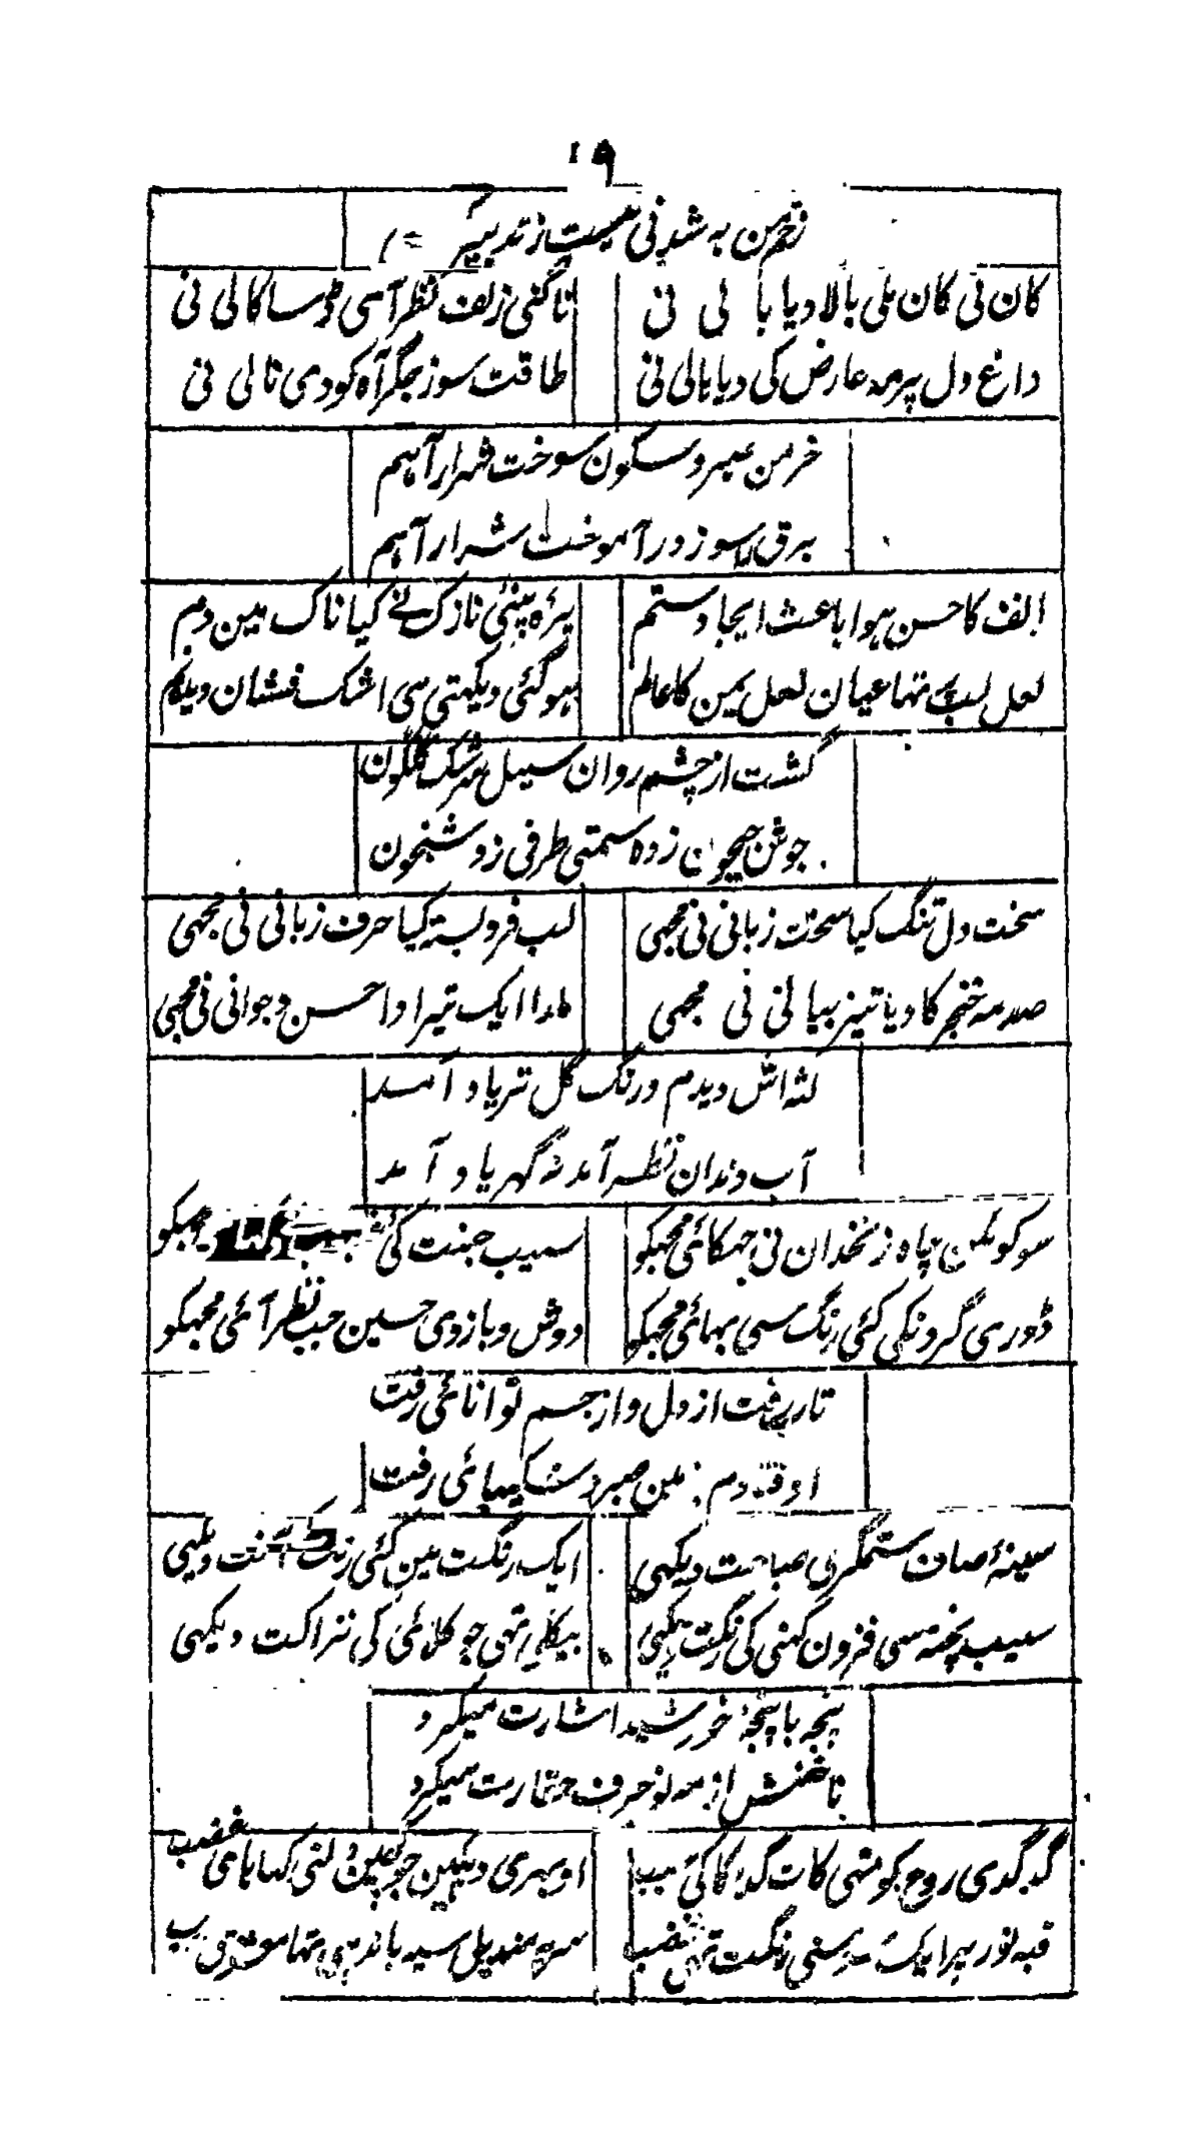 ۱۹
زخم من به شدنی نیست ز تدبیر
کان نی کان ملی بالا دیا با لی نی
ناگنی زلف نظر آسی ڈسا کالی نی
داغ دل پر مه عارض کی دیا بالی نی
طاقت سوز جگر آه کو دی نالی نی
خرمن صبر و سکون سوخت شرار آهم
برق را سوز در آموخت شرار آهم
الف کا حسن ہوا باعث ایجاد ستم
پرّه بینیٔ نازک نے کیا ناک مین دم
لعل لب پہ تہا عیان لعل یمن کا عالم
ہو گئی دیکہتی ہی اشک فشان
گشت از چشم روان سیل سرشک گلگون
جوش جیحون زده سمتی طرفی زد شبخون
سخت دل تنگ کیا سخت زبانی نی مجہی
لب فرو بستہ کیا حرف زبانی نی مجہی
صدمہ خنجر کا دیا تیز بیانی نی مجہی
مارا ایک تیر ادا حسن و جوانی نی مجہی
لثه اش دیدم و رنگ گل تر یاد آمد
آب دندان نظر آمد گهر یاد آمد
چاه زنخدان نی جہکائی مجہکو
سیب جنت کی مجہکو
ڈوری گردنکی کئی رنگ سی بہائی مجہکو
دوش و بازوی حسین جب نظر آئی مجہکو
تاب رفت از دل و از جسم توانائی رفت
صبر و شکیبائی رفت
سینهٔ صاف ستمگر کی صباحت دیکہی
ایک رنگت مین کئی رنگ دیکہی
سیب پختہ سی فزون کہنی کی رنگت دیکہی
بیکلی تہی جو کلائی کی نزاکت دیکہی
پنجه با پنجهٔ خورشید اشارت میکرد
ناخنش از مه نو حرف حقارت میکرد
گدگدی روح کو تہی کات گدا کا کئی
اوبہری دیکہین جو کہا ہای غضب
قبہ نور پر ایک رنگت تہی غضب
سر پہ باندہی تہا